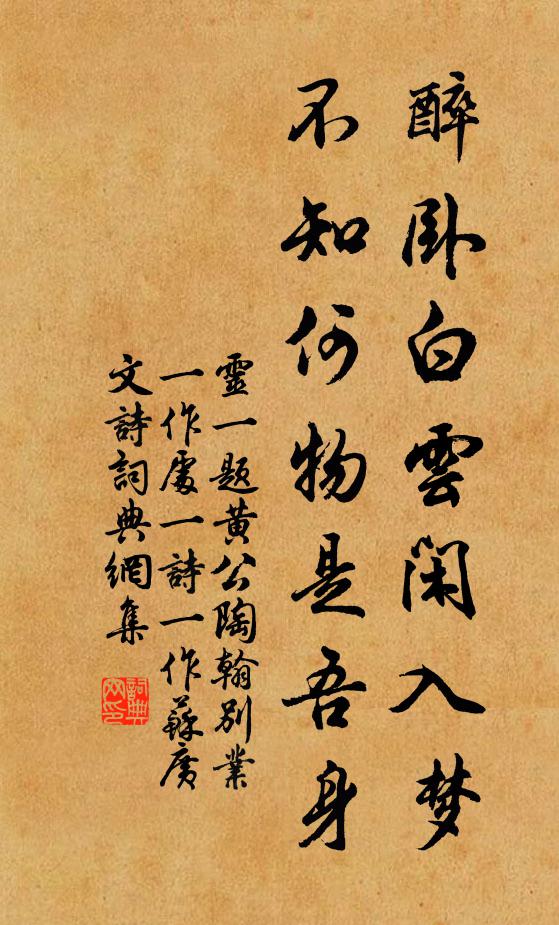 醉卧白雲閑入梦
不知何物是吾身
靈一题黄公陶翰别業
一作處一詩一作蘇廣
文詩詞典網集
詞典网印